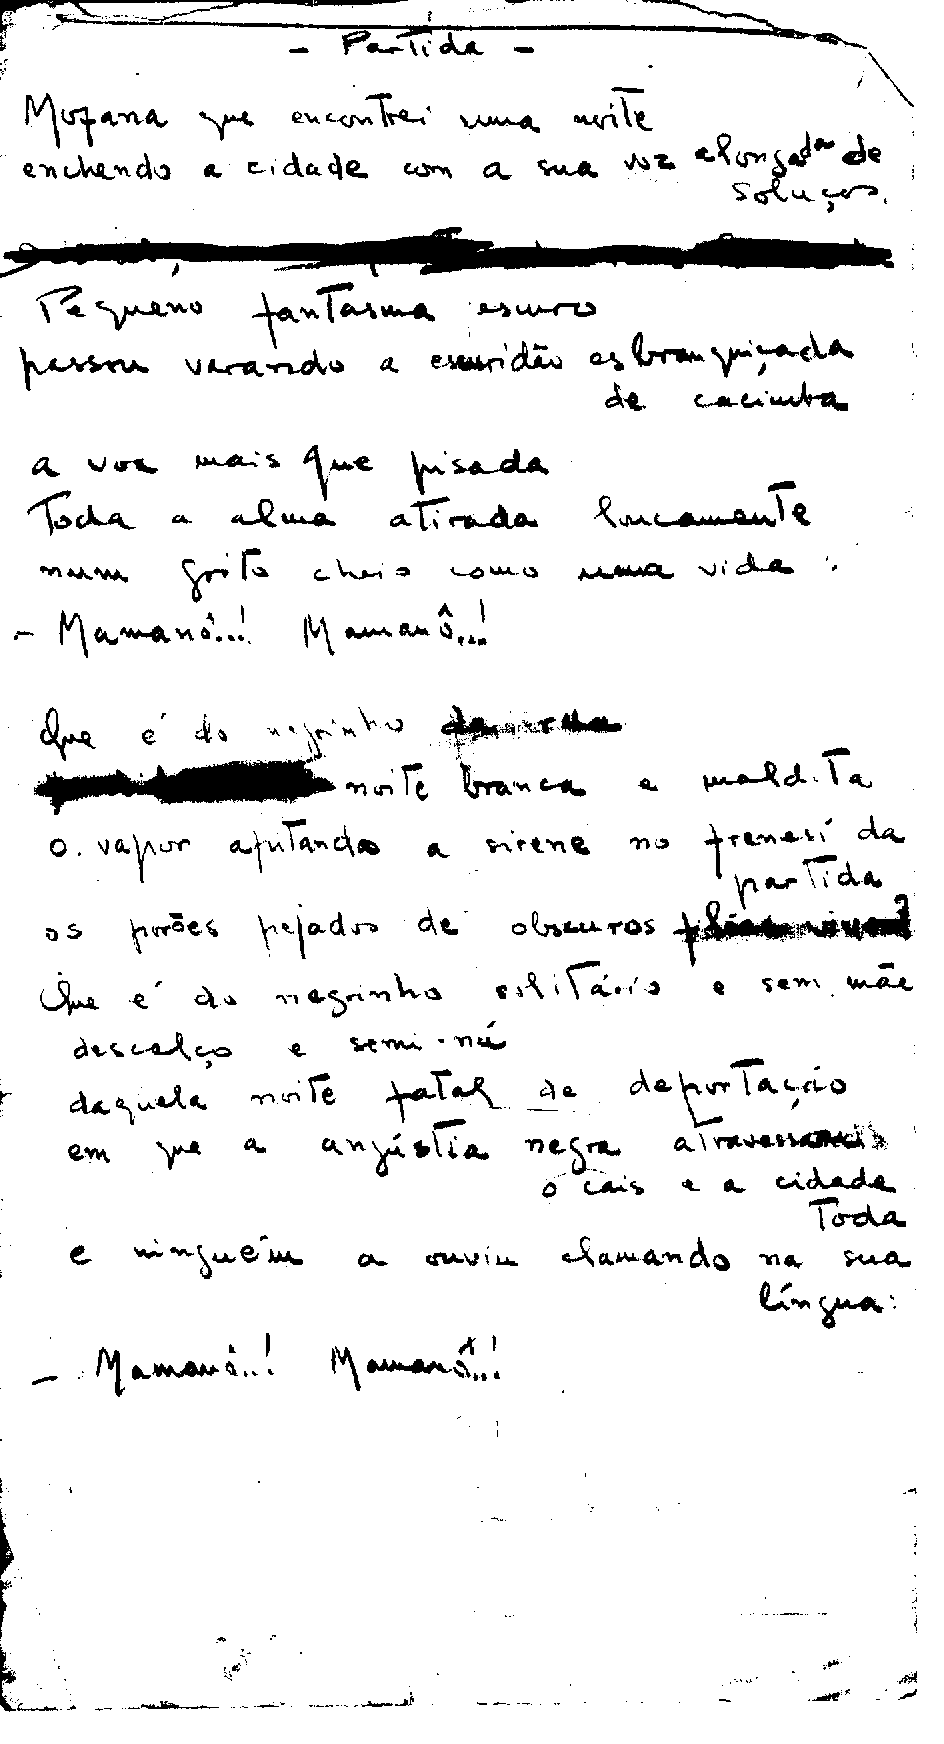 - Partida -
Mofana que encontrei numa noite
enchendo a cidade com a sua voz alongada de
soluços.
Pequeno fantasma escuro
passou varando a escuridão esbranquiçada
de cacimba
a voz mais que pisada
Toda a alma atirada loucamente
num grito cheio como uma vida:
- Mamanô...! Mamanô...!
Que é do negrinho da rua
noite branca e maldita
o vapor apitando a sirene no frenesí da
partida
os porões pejados de obscuros
Que é do negrinho solitário e sem mãe
descalço e semi-nú
daquela noite fatal de deportação
em que a angústia negra atravessou
o cais e a cidade
Toda
e ninguém a ouviu clamando na sua
língua:
- Mamanô...! Mamanô...!